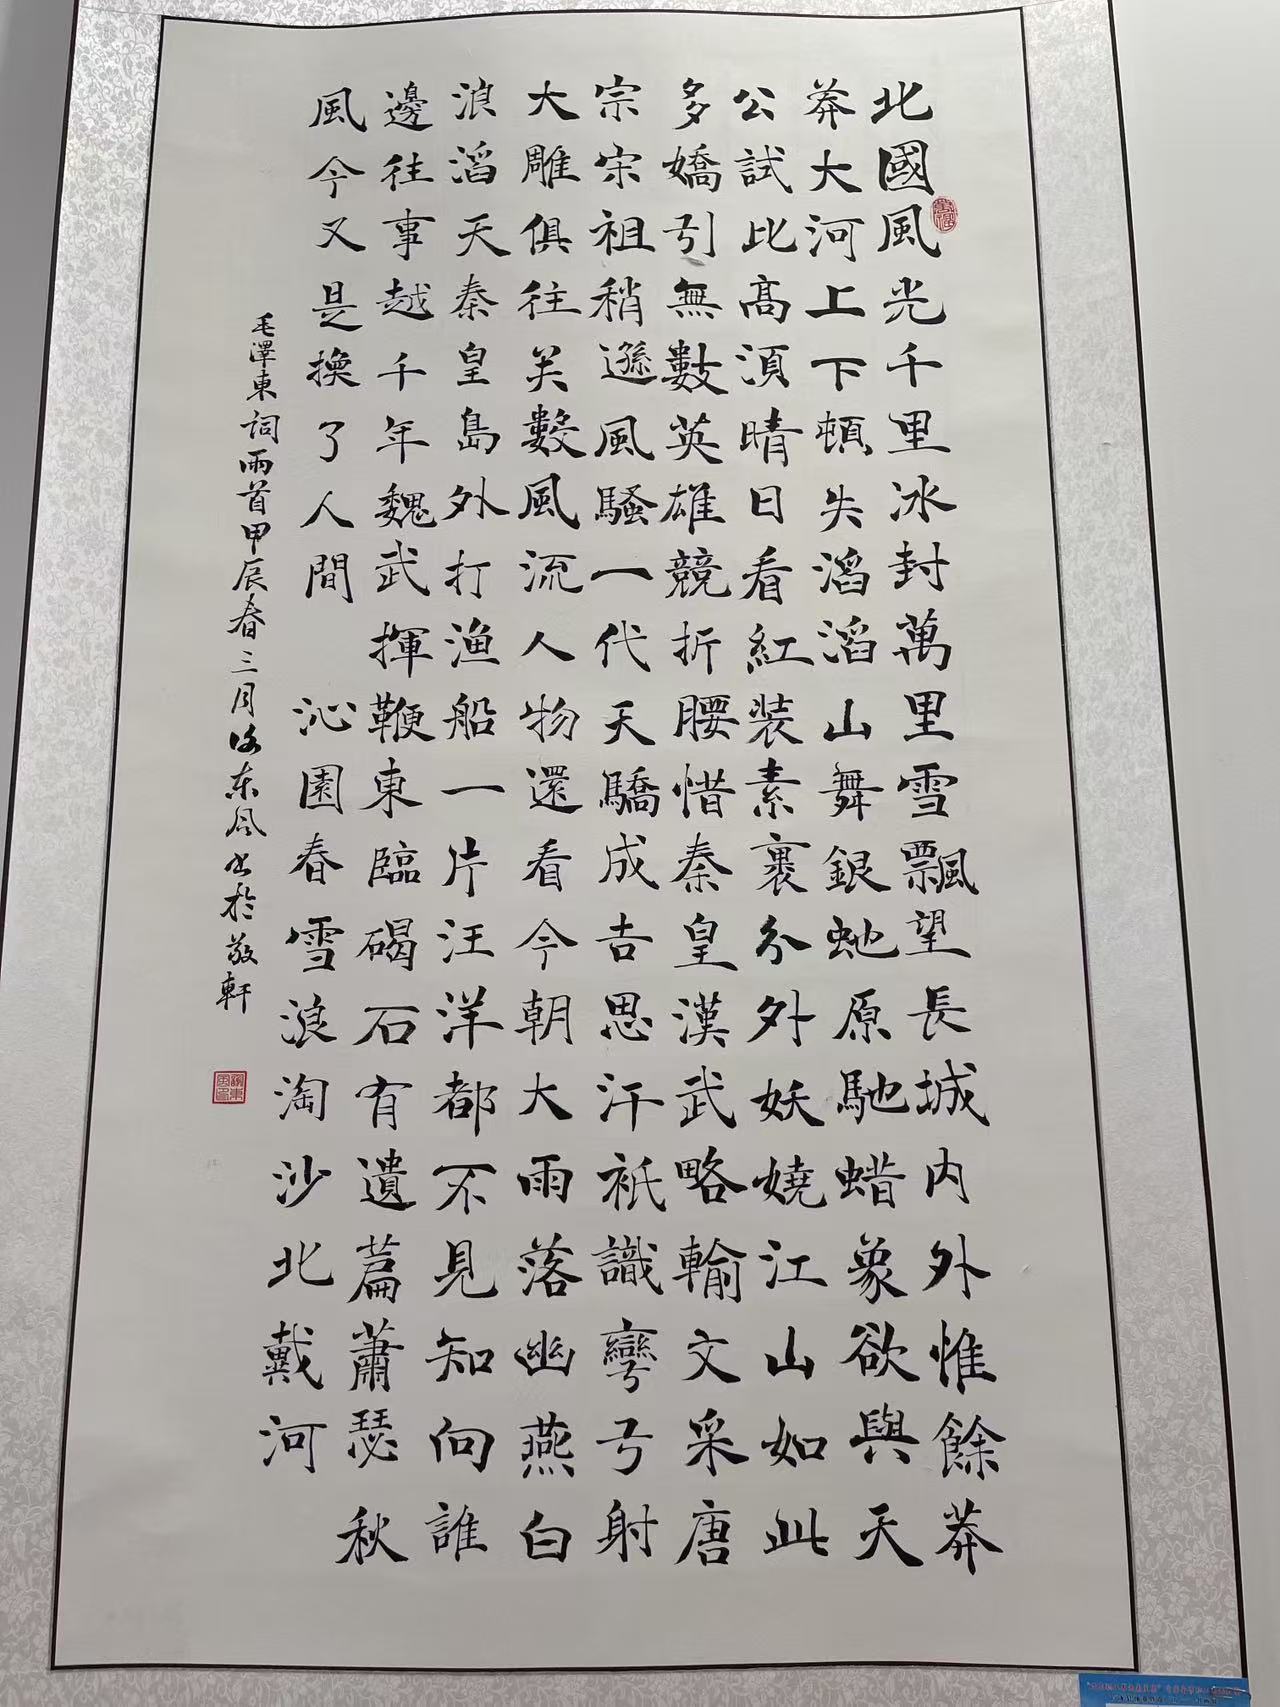 北國風光千里冰封萬里雪飄望長城内外惟餘莽
莽大河上下頓失滔滔山舞銀虵原馳蜡象欲與天
公試比高須晴日看紅裝素裹分外妖嬈江山如此
多嬌引無數英雄競折腰惜秦皇漢武略輸文采唐
宗宋祖稍遜風騷一代天驕成吉思汗祇識彎弓射
大雕俱往矣數風流人物還看今朝大雨落幽燕白
浪滔天秦皇島外打漁船一片汪洋都不見知向誰
邊往事越千年魏武揮鞭東臨碣石有遺篇蕭瑟秋
風今又是換了人間 沁園春雪浪淘沙北戴河
毛澤東詞兩首甲辰春三月东风书於敬軒